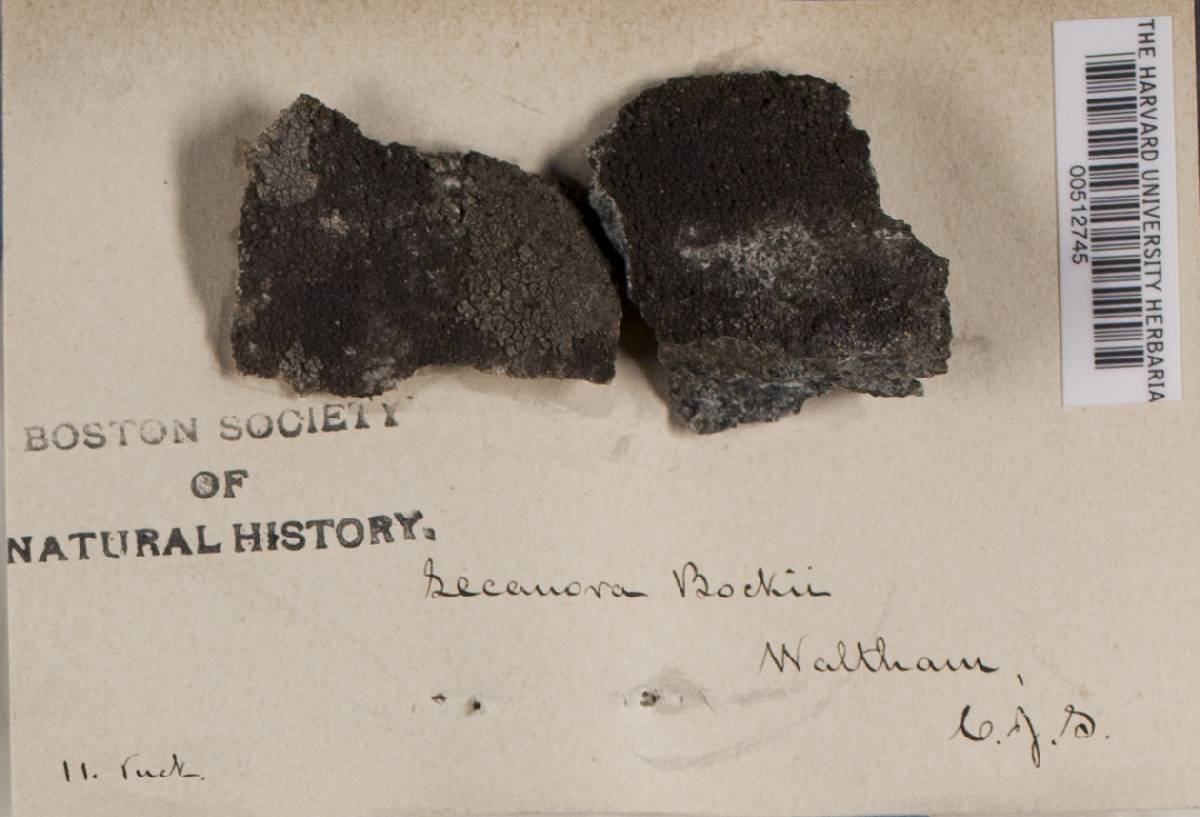 THE HARVARD UNIVERSITY HERBARIA
00512745
BOSTON SOCIETY
OF
NATURAL HISTORY.
Lecanora Bockii
Waltham,
C.J.S.
11. Tuck.